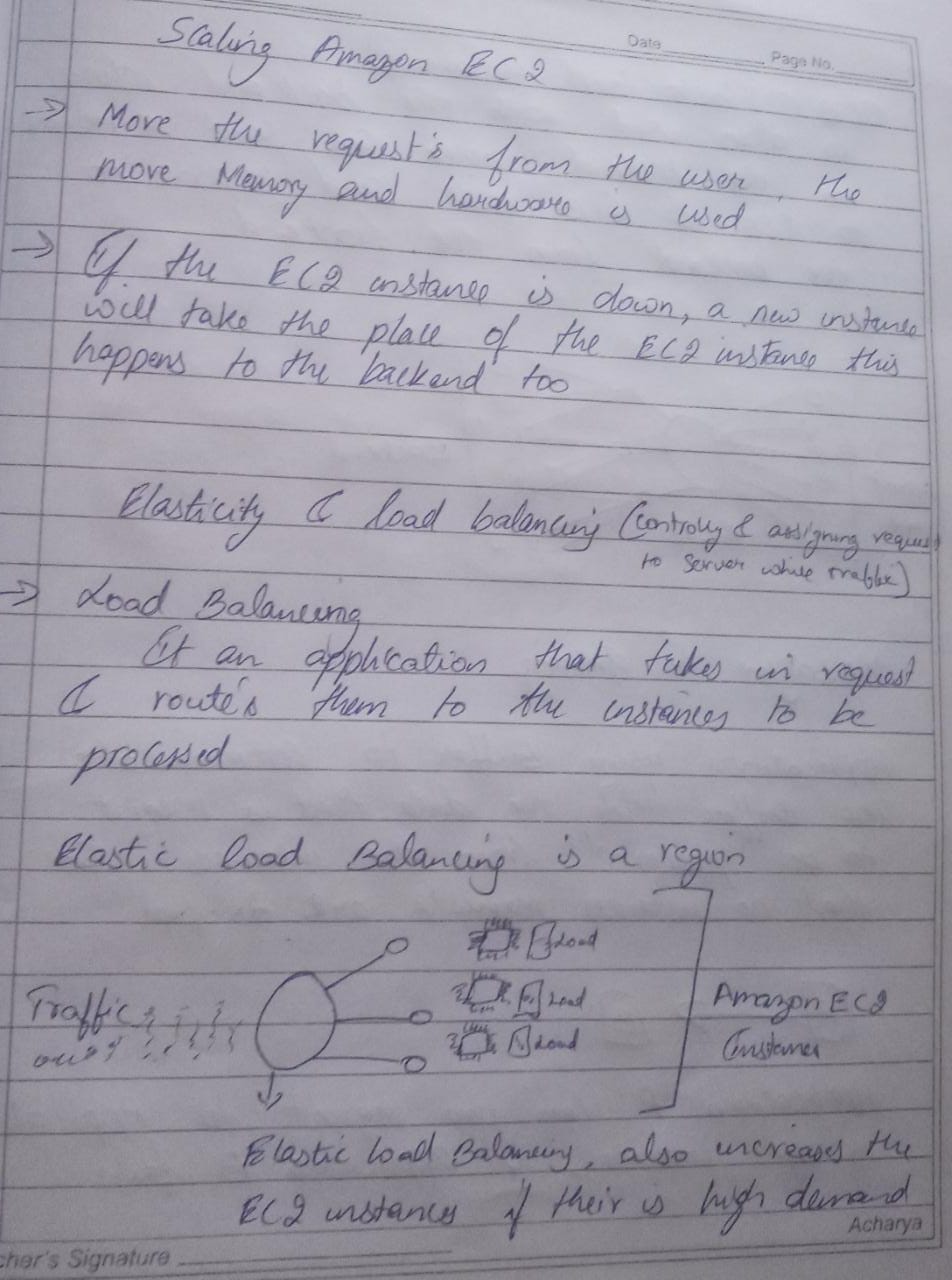 Date
Page No.
Scaling Amazon EC2
→ More the request's from the user, the
more Memory and hardware is used
→ If the EC2 instance is down, a new instance
will take the place of the EC2 instance this
happens to the backend too
Elasticity & load balancing (controlly & assigning request
to server while traffic)
→ Load Balancing
It an application that takes in request
& route's them to the instances to be
processed
Elastic load Balancing is a region
Load
Traffic
Load
Amazon EC2
Load
Instances
Elastic load Balancing, also increases the
EC2 instances if their is high demand
Acharya
cher's Signature